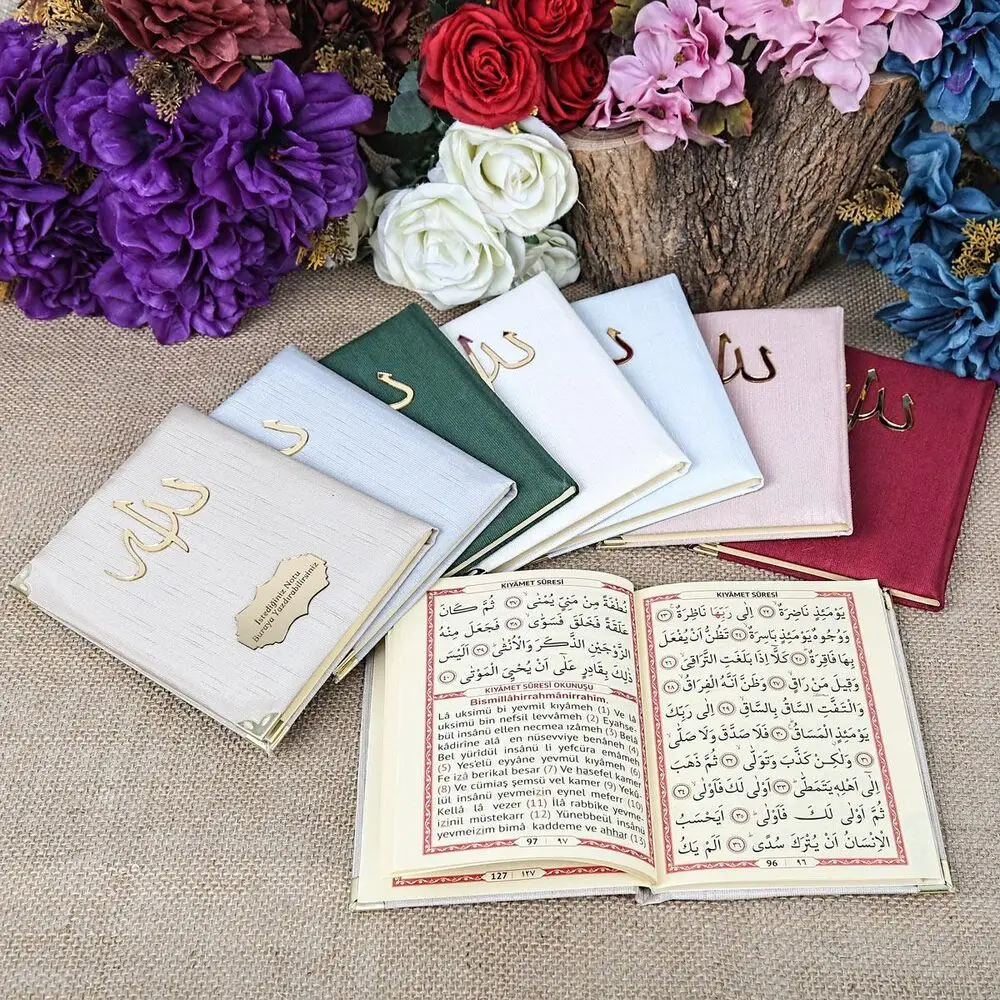 الله
İstediğiniz Notu
Buraya Yazdırabilirsiniz
KIYÂMET SÛRESİ
يَوْمَئِذٍ نَاضِرَةٌ ﴿٢٢﴾ اِلٰى رَبِّهَا نَاظِرَةٌ ﴿٢٣﴾
وَوُجُوهٌ يَوْمَئِذٍ بَاسِرَةٌ ﴿٢٤﴾ تَظُنُّ اَنْ يُفْعَلَ
بِهَا فَاقِرَةٌ ﴿٢٥﴾ كَلَّٓا اِذَا بَلَغَتِ التَّرَاقِيَ ﴿٢٦﴾
وَقِيلَ مَنْ رَاقٍ ﴿٢٧﴾ وَظَنَّ اَنَّهُ الْفِرَاقُ ﴿٢٨﴾
وَالْتَفَّتِ السَّاقُ بِالسَّاقِ ﴿٢٩﴾ اِلٰى رَبِّكَ
يَوْمَئِذٍ الْمَسَاقُ ﴿٣٠﴾ فَلَا صَدَّقَ وَلَا صَلّٰى
﴿٣١﴾ وَلٰكِنْ كَذَّبَ وَتَوَلّٰى ﴿٣٢﴾ ثُمَّ ذَهَبَ
اِلٰٓى اَهْلِهٖ يَتَمَطّٰى ﴿٣٣﴾ اَوْلٰى لَكَ فَاَوْلٰى ﴿٣٤﴾
ثُمَّ اَوْلٰى لَكَ فَاَوْلٰى ﴿٣٥﴾ اَيَحْسَبُ
الْاِنْسَانُ اَنْ يُتْرَكَ سُدًى ﴿٣٦﴾ اَلَمْ يَكُ
96 | ٩٦
KIYÂMET SÛRESİ
نُطْفَةً مِنْ مَنِيٍّ يُمْنٰى ﴿٣٧﴾ ثُمَّ كَانَ
عَلَقَةً فَخَلَقَ فَسَوّٰى ﴿٣٨﴾ فَجَعَلَ مِنْهُ
الزَّوْجَيْنِ الذَّكَرَ وَالْاُنْثٰى ﴿٣٩﴾ اَلَيْسَ
ذٰلِكَ بِقَادِرٍ عَلٰٓى اَنْ يُحْيِيَ الْمَوْتٰى ﴿٤٠﴾
KIYÂMET SÛRESİ OKUNUŞU
Bismillâhirrahmânirrahîm.
Lâ uksimü bi yevmil kıyâmeh (1) Ve lâ
uksimü bin nefsil levvâmeh (2) Eyahse-
bül insânü ellen necmea ızâmeh (3) Belâ
kâdirîne alâ en nüsevviye benâneh (4)
Bel yürîdül insânü li yefcüra emâmeh
(5) Yes'elü eyyâne yevmül kıyâmeh (6)
Fe izâ berikal besar (7) Ve hasefel kamer
(8) Ve cümiaş şemsü vel kamer (9) Yekû-
lül insânü yevmeizin eynel meferr (10)
Kellâ lâ vezer (11) İlâ rabbike yevme-
izinil müstekarr (12) Yünebbeül insânü
yevmeizin bimâ kaddeme ve ahhar (13)
97 | ٩٧
127 | ١٢٧